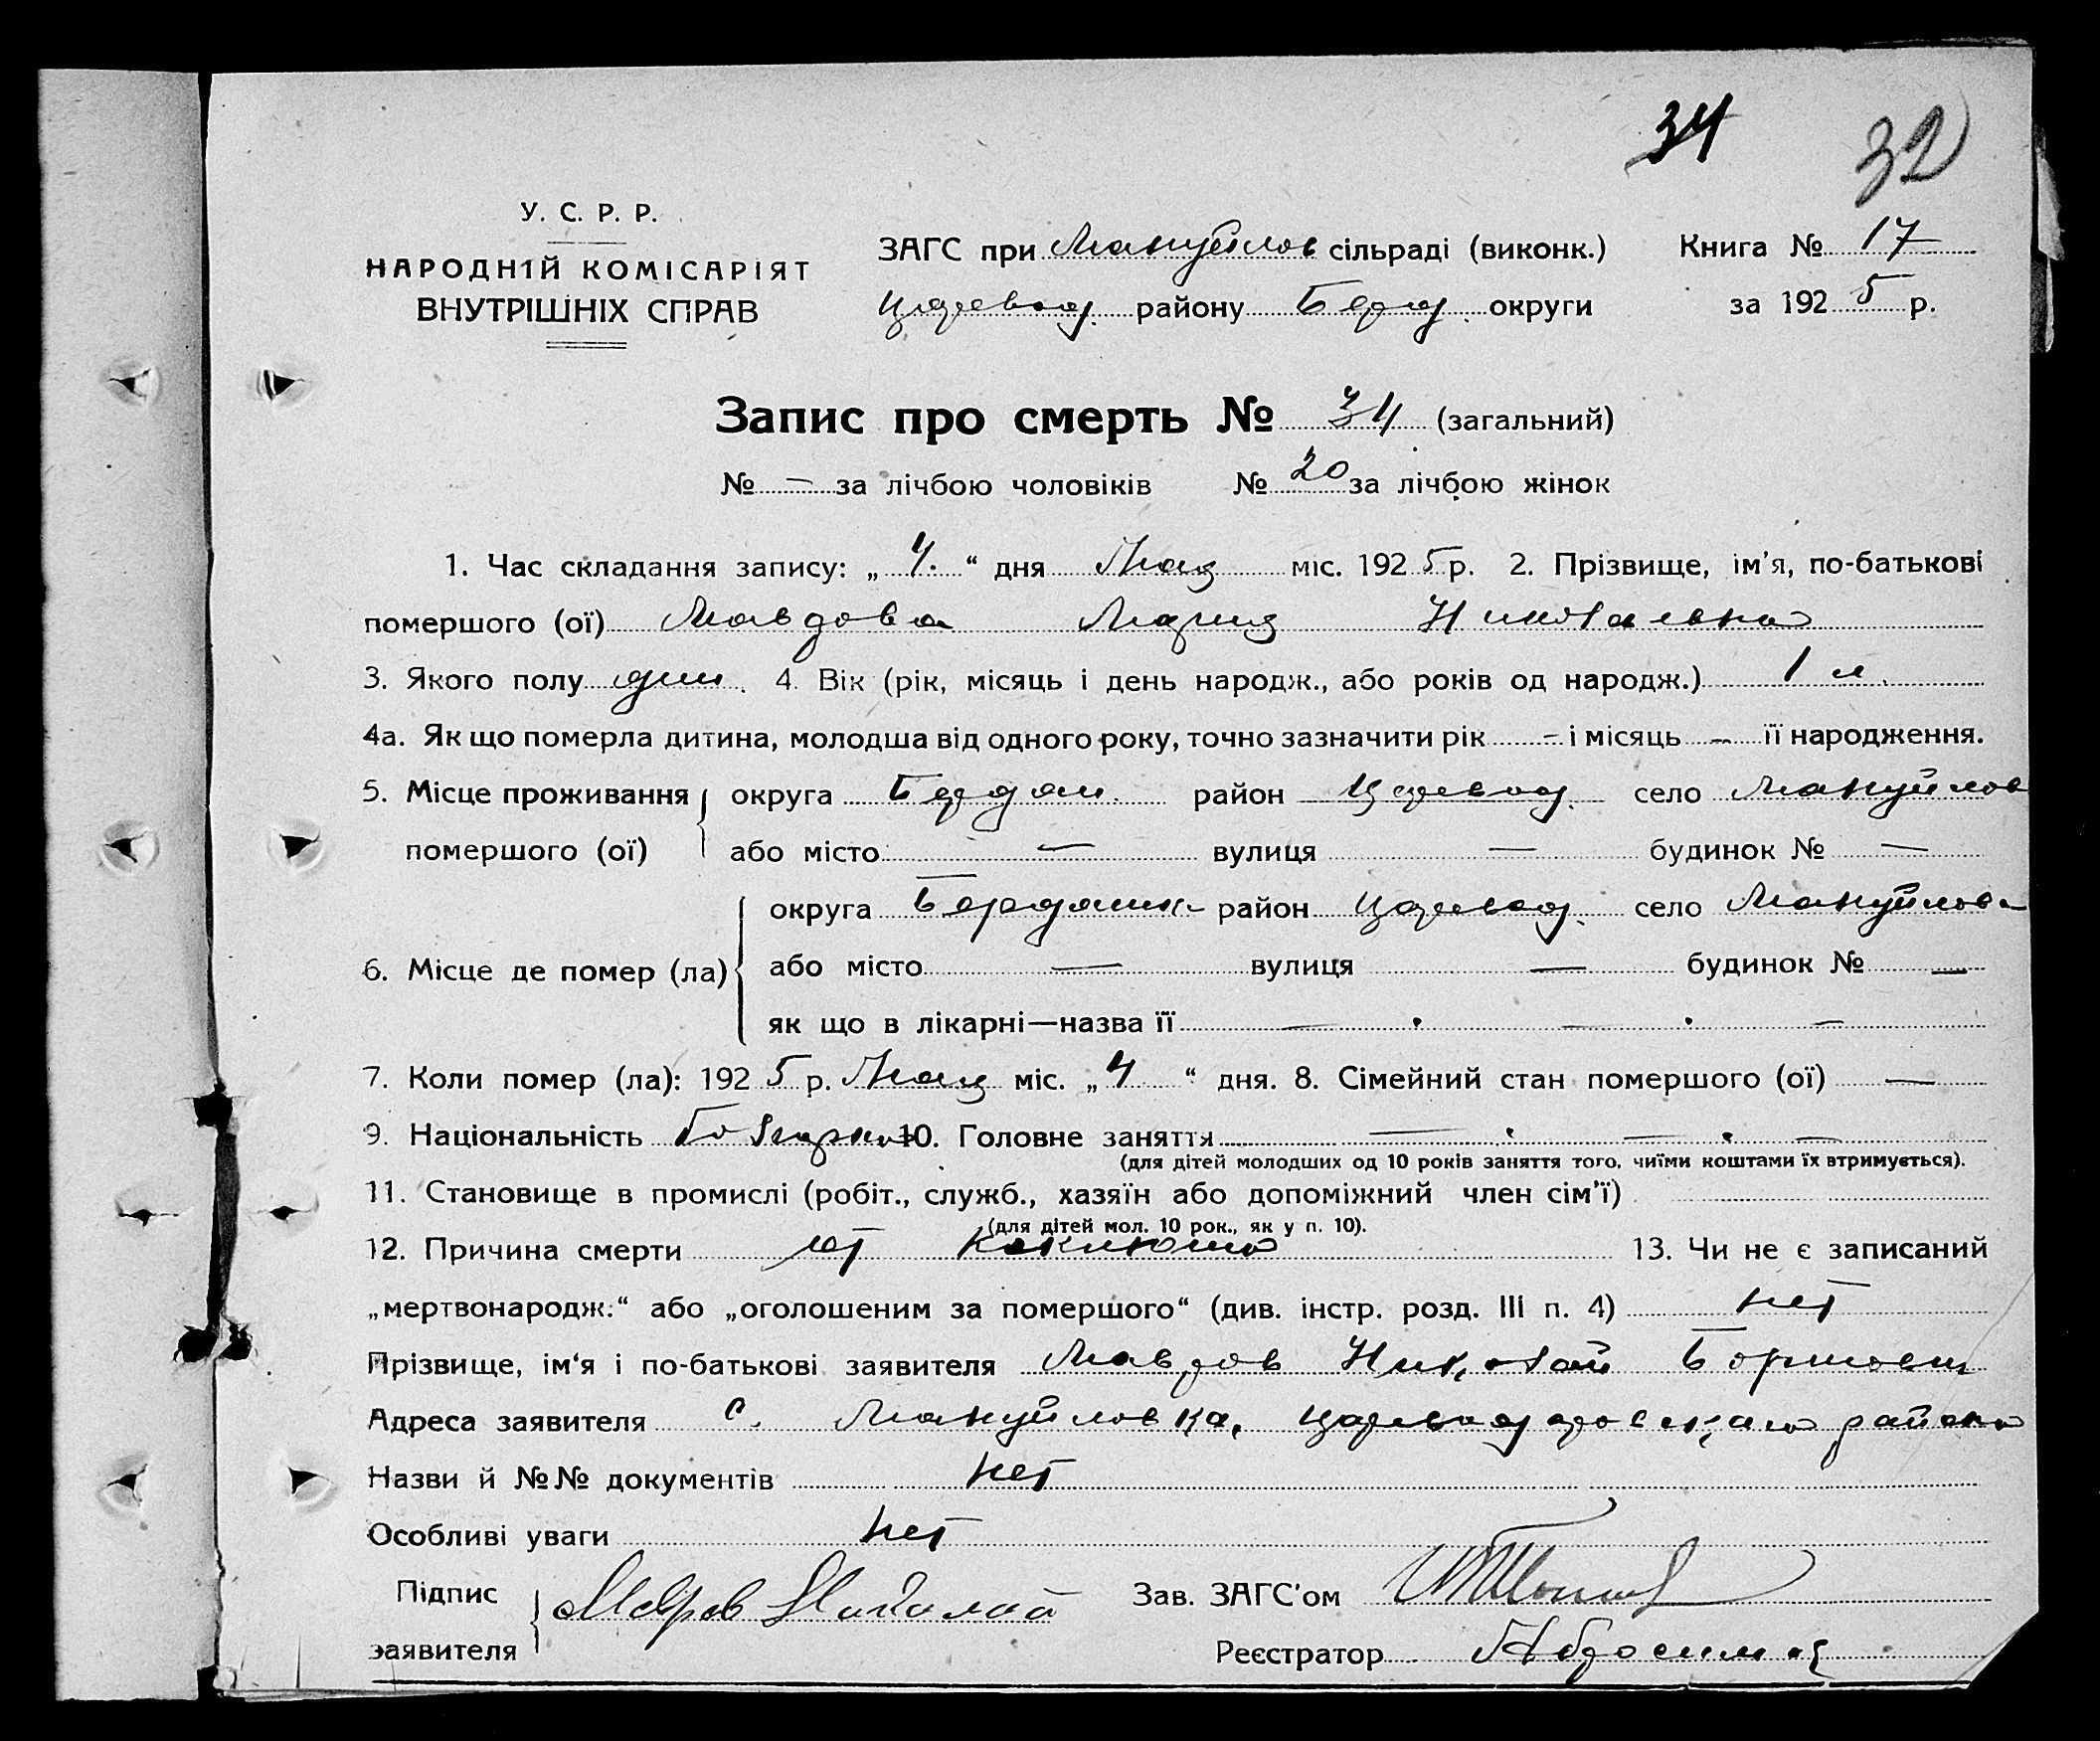 34 32
У. С. Р. Р.
НАРОДНІЙ КОМІСАРІЯТ
ВНУТРІШНІХ СПРАВ
ЗАГС при Мануйлов сільраді (виконк.) Книга № 17
Царевод. району Берд. округи за 1925 р.
Запис про смерть № 34 (загальний)
№ — за лічбою чоловіків № 20 за лічбою жінок
1. Час складання запису: „4.“ дня Мая міс. 1925 р. 2. Прізвище, ім'я, по-батькові
помершого (ої) Мавдова Мария Николаевна
3. Якого полу 4. Вік (рік, місяць і день народж., або років од народж.) 1
4а. Як що померла дитина, молодша від одного року, точно зазначити рік – і місяць – її народження.
5. Місце проживання округа Бердян. район Царевод. село Мануйлов
помершого (ої) або місто — вулиця — будинок № —
округа Бердянск район Царевод. село Мануйлов
6. Місце де помер (ла) або місто — вулиця — будинок № —
як що в лікарні—назва її — . — . —
7. Коли помер (ла): 1925 р. Мая міс. „4“ дня. 8. Сімейний стан помершого (ої) —
9. Національність Болгарка 10. Головне заняття — . — . —
(для дітей молодших од 10 років заняття того, чиїми коштами їх втримується).
11. Становище в промислі (робіт., служб., хазяїн або допоміжний член сім'ї)
(для дітей мол. 10 рок., як у п. 10).
12. Причина смерти от коклюша 13. Чи не є записаний
„мертвонародж.“ або „оголошеним за помершого“ (див. інстр. розд. III п. 4) нет
Прізвище, ім'я і по-батькові заявителя Мавров Николай
Адреса заявителя с. Мануйловка, Цареводаровскаго района
Назви й №№ документів нет
Особливі уваги нет
Підпис Мавров Николай Зав. ЗАГС'ом
заявителя Реєстратор Абросимов